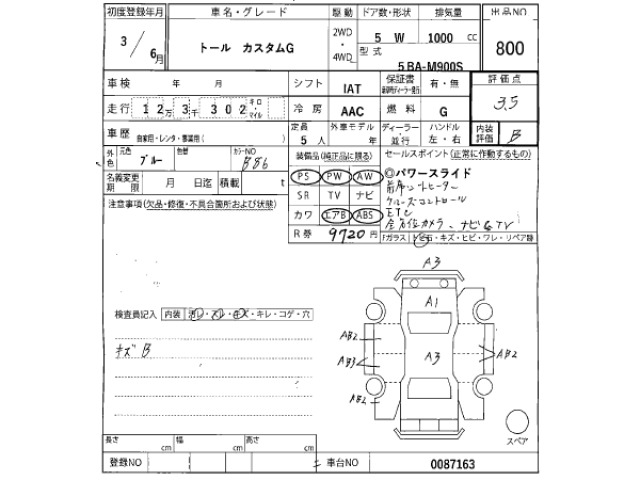 初度登録年月 車名・グレード 駆動 ドア数・形状 排気量 出品NO
3/6月 トール カスタムG 2WD・4WD 5 W 1000 cc 800
型式 5BA-M900S
車検 年 月 シフト IAT 保証書 有・無 評価点 3.5
走行 12万3千302 キロ・マイル 冷房 AAC 燃料 G
車歴 自家用・レンタ・事業用( ) 定員 5人 外車モデル 年 ディーラー・並行 ハンドル 左・右 内装評価 B
外色 元色 ブルー 色替 カラーNO B86 装備品(純正品に限る) セールスポイント(正常に作動するもの)
名義変更期限 月 日迄 積載 t PS PW AW ◎パワースライド
注意事項(欠品・修復・不具合箇所および状態) SR TV ナビ クルーズコントロール
カワ エアB ABS ETC
全方位カメラ、ナビ&TV
R券 9720円 Fガラス 飛石・キズ・ヒビ・ワレ・リペア跡
A3
A1
検査員記入 内装 ヨレ・スレ・キズ・キレ・コゲ・穴
キズB
AB2 A3 AB2
AB3
AB2
スペア
長さ cm 幅 cm 高さ cm
登録NO 車台NO 0087163